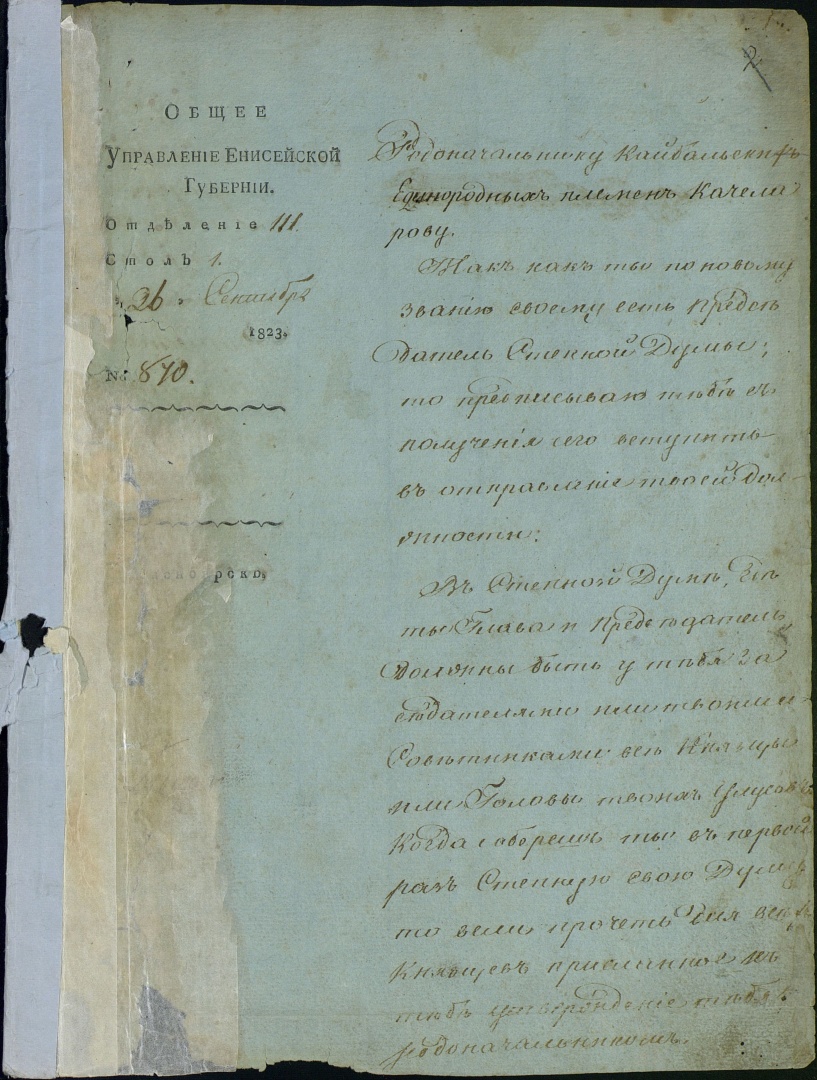 ОБЩЕЕ
УПРАВЛЕНІЕ ЕНИСЕЙСКОЙ
ГУБЕРНІИ.
Отдѣленіе III
Столъ 1.
26 Сентября
1823.
No. 870.
рскъ,
Родоначальнику Кайбальскихъ
Единородныхъ племенъ Качела
рову.
Такъ какъ ты по новому
званію своему есть Предсѣ
датель Степной Думы;
то предписываю тебѣ съ
полученія сего вступить
въ отправленіе твоей Дол-
жности.
Въ Степной Думѣ, гдѣ
ты Глава и Предсѣдатель
Должны быть у тебя За
сѣдателями или твоими
Совѣтниками всѣ Князцы
или Головы твоихъ Улусовъ
Когда соберешь ты въ первой
разъ Степную свою Думу
то вели прочеть для всѣхъ
Князцевъ присланное къ
тебѣ утвержденіе тебя
родоначальникомъ.